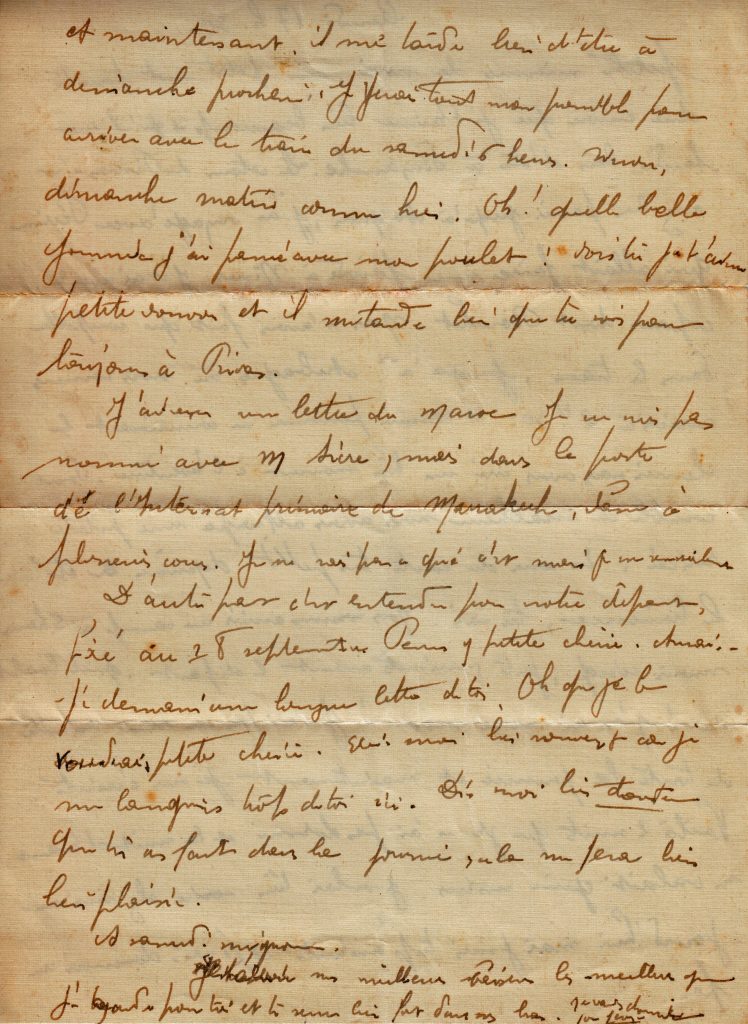 et maintenant, il me tarde bien d'être à
dimanche prochain. Je ferai tout mon possible pour
arriver avec le train du samedi 6 heures. Sinon,
dimanche matin comme hier. Oh! quelle belle
journée j'ai passé avec mon poulet! Vois tu je t'adore
petite et il me tarde bien que tu sois pour
toujours à Privas.
J'ai une lettre du Maroc Je ne suis pas
nommé avec M , mais dans le poste
de l'Internat primaire de Marrakech,
plusieurs cours. Je ne sais pas ce que c'est mais je me
D'autre part c'est entendu pour notre départ,
fixé au 28 septembre Penses y petite chérie. Aurai-
-je demain une longue lettre de toi. Oh que je le
voudrais, petite chérie. Ecris moi bien souvent car je
me languis trop de toi ici. Dis moi bien
que tu as fait dans la journée, cela me fera bien
bien plaisir.
A samedi mignonne.
mes meilleurs baisers les meilleurs que
j'ai pour toi et te serre bien fort dans mes bras.